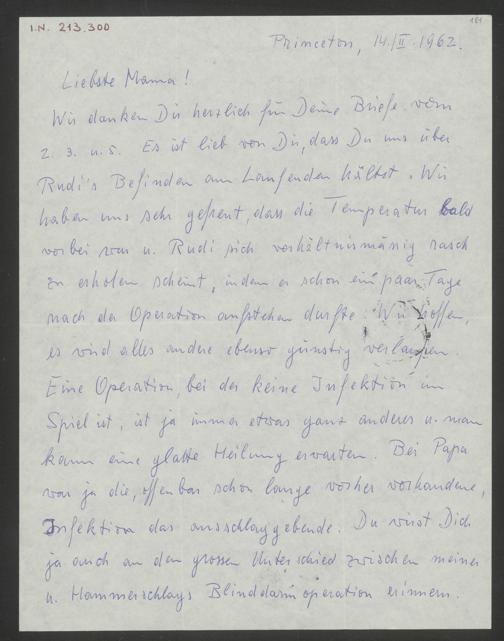 I.N. 213.300
181
Princeton, 14./II.1962.
Liebste Mama!
Wir danken Dir herzlich für Deine Briefe vom
2. 3. u. 5. Es ist lieb von Dir, dass Du uns über
Rudi's Befinden am Laufenden hältst. Wir
haben uns sehr gefreut, dass die Temperatur bald
vorbei war u. Rudi sich verhältnismässig rasch
zu erholen scheint, indem er schon ein paar Tage
nach der Operation aufstehen durfte. Wir hoffen,
es wird alles andere ebenso günstig verlaufen.
Eine Operation, bei der keine Infektion im
Spiel ist, ist ja immer etwas ganz anderes u. man
kann eine glatte Heilung erwarten. Bei Papa
war ja die, offenbar schon lange vorher vorhandene,
Infektion das ausschlaggebende. Du wirst Dich
ja auch an den grossen Unterschied zwischen meiner
u. Hammerschlags Blinddarmoperation erinnern.